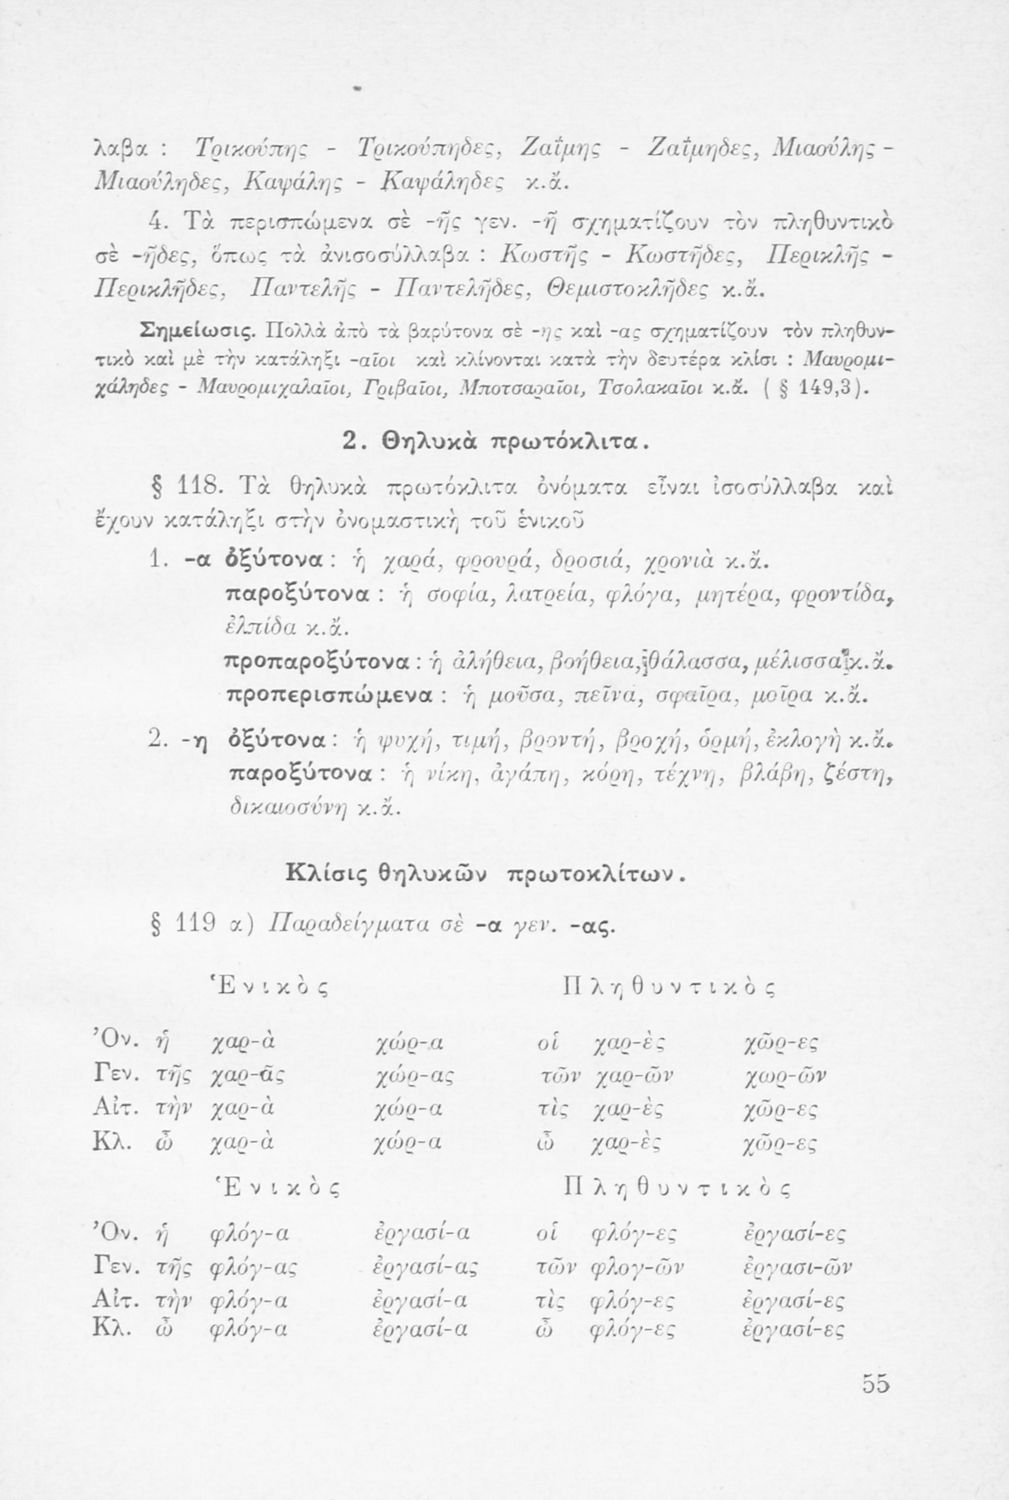 λαβα : Τρικούπης - Τρικούπηδες, Ζαΐμης - Ζαΐμηδες, Μιαούλης -
Μιαούληδες, Καψάλης - Καψάληδες κ.ἄ.
4. Τὰ περισπώμενα σὲ -ῆς γεν. -ῆ σχηματίζουν τὸν πληθυντικὸ
σὲ -ῆδες, ὅπως τὰ ἀνισοσύλλαβα : Κωστῆς - Κωστῆδες, Περικλῆς -
Περικλῆδες, Παντελῆς - Παντελῆδες, Θεμιστοκλῆδες κ.ἄ.
Σημείωσις. Πολλὰ ἀπὸ τὰ βαρύτονα σὲ -ης καὶ -ας σχηματίζουν τὸν πληθυν-
τικὸ καὶ μὲ τὴν κατάληξι -αῖοι καὶ κλίνονται κατὰ τὴν δευτέρα κλίσι : Μαυρομι-
χάληδες - Μαυρομιχαλαῖοι, Γριβαῖοι, Μποτσαραῖοι, Τσολακαῖοι κ.ἄ. ( § 149,3).
2. Θηλυκὰ πρωτόκλιτα.
§ 118. Τὰ θηλυκὰ πρωτόκλιτα ὀνόματα εἶναι ἰσοσύλλαβα καὶ
ἔχουν κατάληξι στὴν ὀνομαστικὴ τοῦ ἑνικοῦ
1. -α ὀξύτονα : ἡ χαρά, φρουρά, δροσιά, χρονιὰ κ.ἄ.
παροξύτονα : ἡ σοφία, λατρεία, φλόγα, μητέρα, φροντίδα,
ἐλπίδα κ.ἄ.
προπαροξύτονα : ἡ ἀλήθεια, βοήθεια, θάλασσα, μέλισσα κ.ἄ.
προπερισπώμενα : ἡ μοῦσα, πεῖνα, σφαῖρα, μοῖρα κ.ἄ.
2. -η ὀξύτονα : ἡ ψυχή, τιμή, βροντή, βροχή, ὁρμή, ἐκλογὴ κ.ἄ.
παροξύτονα : ἡ νίκη, ἀγάπη, κόρη, τέχνη, βλάβη, ζέστη,
δικαιοσύνη κ.ἄ.
Κλίσις θηλυκῶν πρωτοκλίτων.
§ 119 α) Παραδείγματα σὲ -α γεν. -ας.
Ἑνικὸς Πληθυντικὸς
Ὀν. ἡ χαρ-ὰ χώρ-α οἱ χαρ-ὲς χῶρ-ες
Γεν. τῆς χαρ-ᾶς χώρ-ας τῶν χαρ-ῶν χωρ-ῶν
Αἰτ. τὴν χαρ-ὰ χώρ-α τὶς χαρ-ὲς χῶρ-ες
Κλ. ὦ χαρ-ὰ χώρ-α ὦ χαρ-ὲς χῶρ-ες
Ἑνικὸς Πληθυντικὸς
Ὀν. ἡ φλόγ-α ἐργασί-α οἱ φλόγ-ες ἐργασί-ες
Γεν. τῆς φλόγ-ας ἐργασί-ας τῶν φλογ-ῶν ἐργασι-ῶν
Αἰτ. τὴν φλόγ-α ἐργασί-α τὶς φλόγ-ες ἐργασί-ες
Κλ. ὦ φλόγ-α ἐργασί-α ὦ φλόγ-ες ἐργασί-ες
55